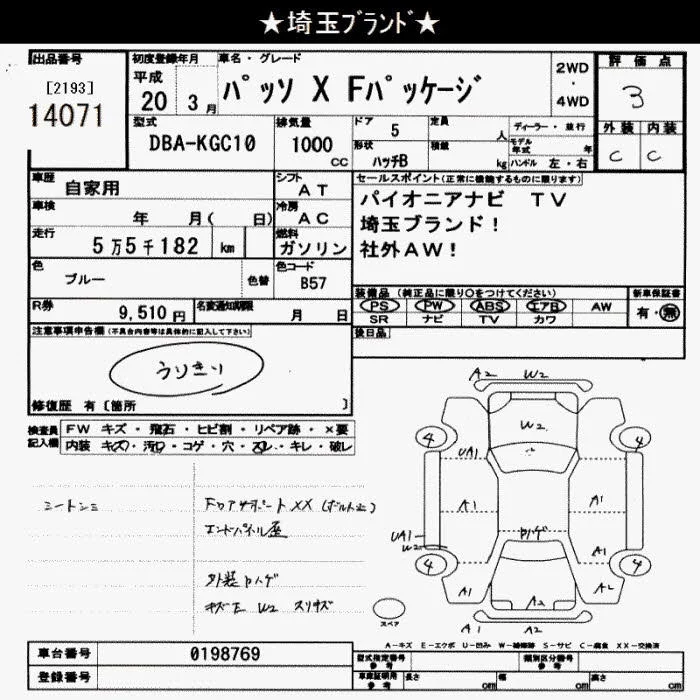 ★埼玉ﾌﾞﾗﾝﾄﾞ★
出品番号
[2193]
14071
初度登録年月
平成
20 3 月
車名・グレード
ﾊﾟｯｿ X Fﾊﾟｯｹｰｼﾞ
2WD
・
4WD
評価点
3
外装 内装
C C
型式
DBA-KGC10
排気量
1000
CC
ドア
5
定員
人
形状
ﾊｯﾁB
積載
kg
ディーラー・並行
モデル年式 年
ハンドル 左・右
車歴
自家用
シフト
AT
車検
年 月( 日)
冷房
AC
走行
5万5千182 km
燃料
ガソリン
色
ブルー
色替
色コード
B57
R券
9,510 円
名変通知期限
月 日
セールスポイント(正常に機能するものに限ります)
パイオニアナビ TV
埼玉ブランド!
社外AW!
装備品 (純正品に限り○をつけてください)
PS PW ABS エアB AW
SR ナビ TV カワ
新車保証書
有・無
後日品
注意事項申告欄(不具合内容等は具体的に記入して下さい)
うりきり
修復歴 有〔箇所 〕
検査員記入欄
FW キズ・飛石・ヒビ割・リペア跡・×要
内装 キズ・汚れ・コゲ・穴・スレ・キレ・破レ
エンドパネル歪
外装ハゲ
キズE W2 スリキズ
A2 W2
W2
4 4
UA1
A1 A1
UA1
W2
ハゲ
A1
4 4
A1 A2 A2
A2 A1
スペア
A-キズ E-エクボ U-凹み W-補修跡 S-サビ C-腐食 XX-交換済
車台番号
0198769
登録番号
型式指定番号
参考
類別区分番号
参考
車庫証明用
参考
長さ cm 幅 cm 高さ cm